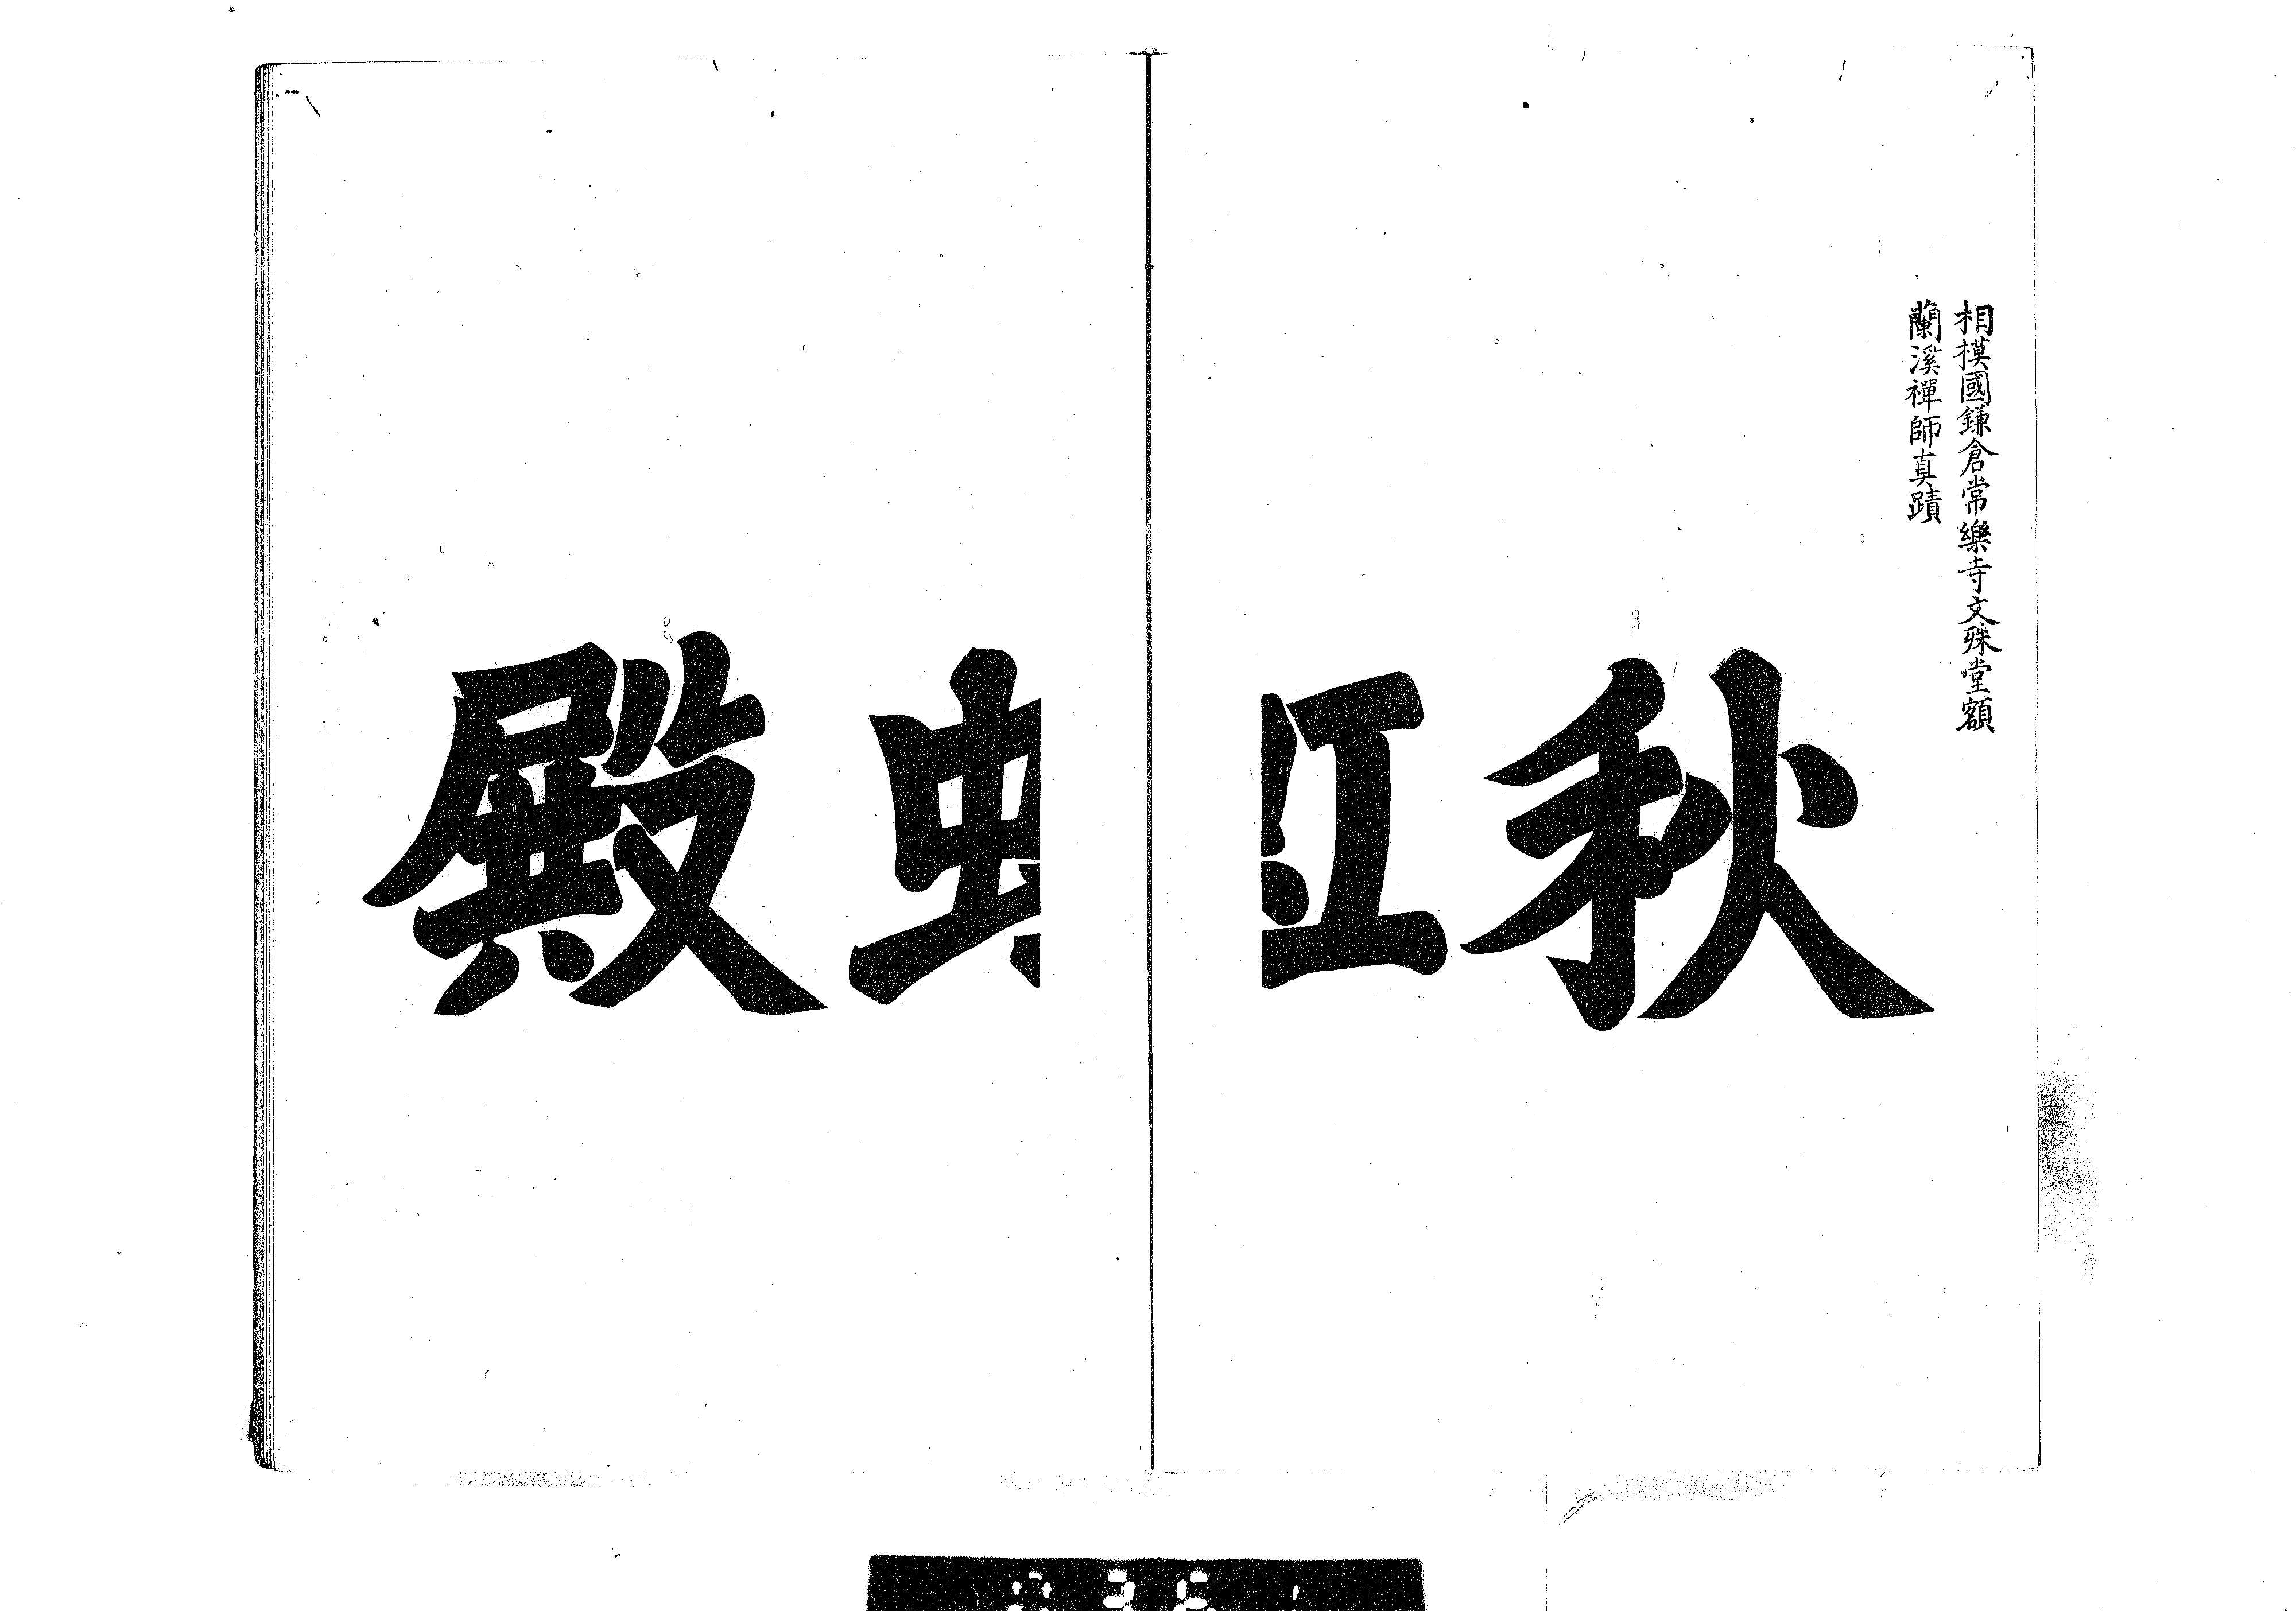 相模國鎌倉常樂寺文殊堂額
蘭溪禪師真蹟
秋虹殿